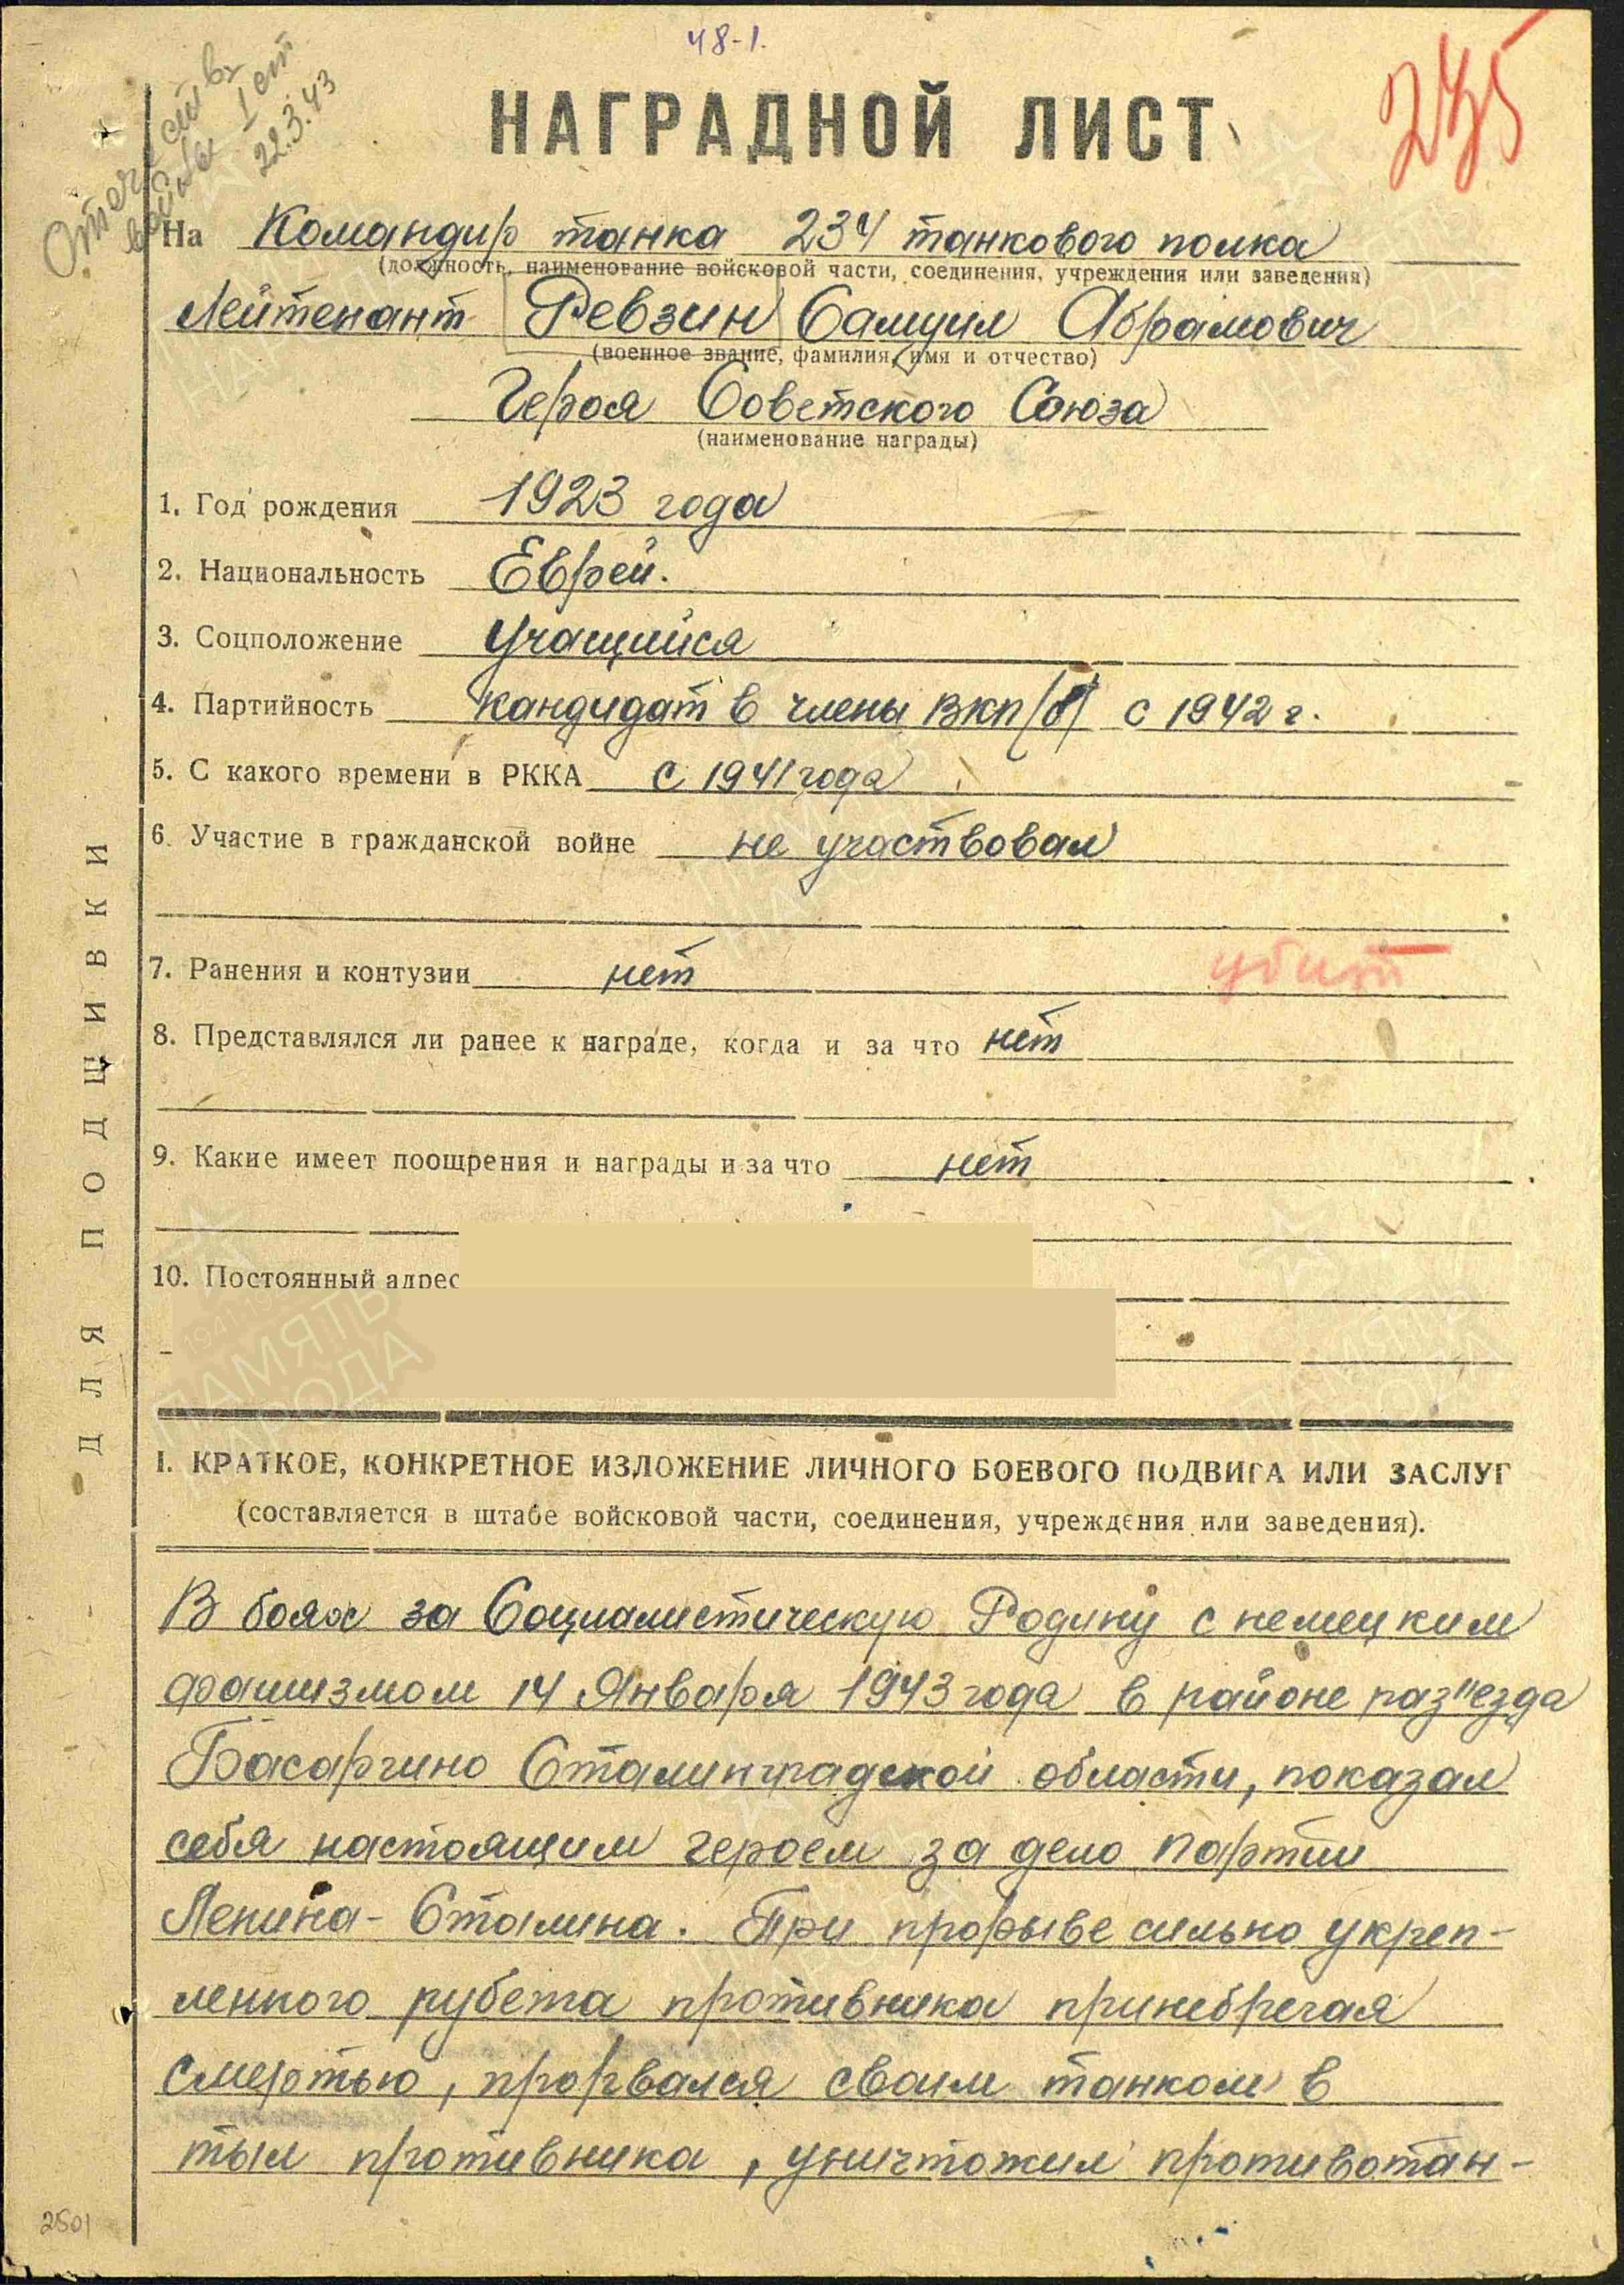 48-1.
245
Отечеств
война I ст
22.3.43
НАГРАДНОЙ ЛИСТ
На Командир танка 234 танкового полка
(должность, наименование войсковой части, соединения, учреждения или заведения)
Лейтенант Ревзин Самуил Абрамович
(военное звание, фамилия, имя и отчество)
Героя Советского Союза
(наименование награды)
1. Год рождения 1923 года
2. Национальность Еврей.
3. Соцположение Учащийся
4. Партийность кандидат в члены ВКП/б/ с 1942 г.
5. С какого времени в РККА с 1941 года
6. Участие в гражданской войне не участвовал
7. Ранения и контузии нет убит
8. Представлялся ли ранее к награде, когда и за что нет
9. Какие имеет поощрения и награды и за что нет
10. Постоянный адрес
ДЛЯ ПОДШИВКИ
1941-19
ПАМЯТЬ
НАРОДА
I. КРАТКОЕ, КОНКРЕТНОЕ ИЗЛОЖЕНИЕ ЛИЧНОГО БОЕВОГО ПОДВИГА ИЛИ ЗАСЛУГ
(составляется в штабе войсковой части, соединения, учреждения или заведения).
В боях за Социалистическую Родину с немецким
фашизмом 14 Января 1943 года в районе раз"езда
Басаргино Сталинградской области, показал
себя настоящим героем за дело партии
Ленина-Сталина. При прорыве сильно укреп-
ленного рубежа противника принебрегая
смертью, прорвался своим танком в
тыл противника, уничтожил противотан-
2501